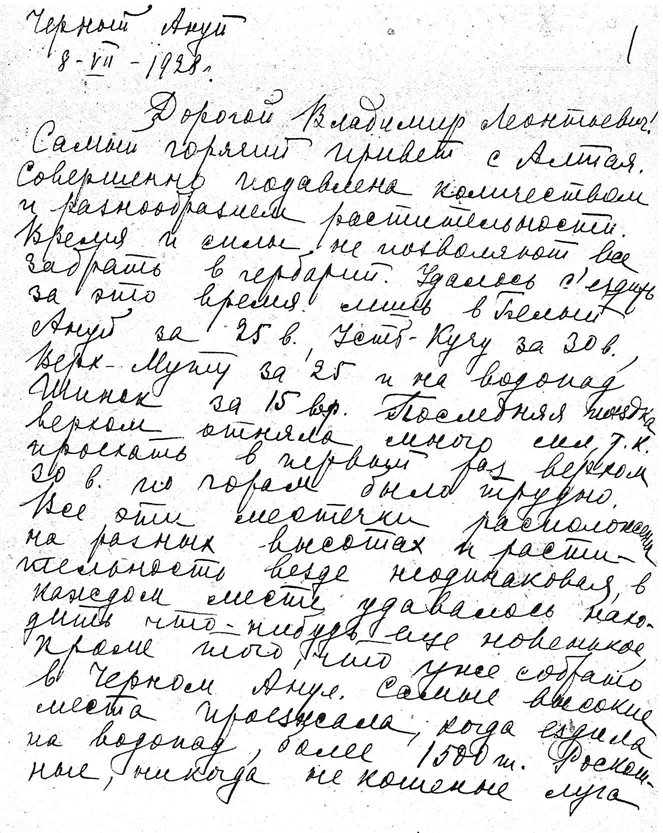 Черный Ануй
8-VII-1928г.
1
Дорогой Владимир Леонтьевич!
Самый горячий привет с Алтая.
Совершенно подавлена количеством
и разнообразием растительности.
Время и силы не позволяют все
забрать в гербарий. Удалось с'ездить
за это время лишь в Белый
Ануй за 25 в. Усть-Кучу за 30 в.,
Верх-Муту за 25 и на водопад
Шинск за 15 вр. Последняя поездка
верхом отняла много сил, т.к.
проехать в первый раз верхом
30 в. по горам было трудно.
Все эти местечки расположены
на разных высотах и расти-
тельность везде неодинаковая, в
каждом месте удавалось нахо-
дить что-нибудь еще новенькое,
кроме того, что уже собрано
в Черном Ануе. Самые высокие
места проезжала, когда ездила
на водопад, более 1500 m. Роскош-
ные, никогда не кошеные луга